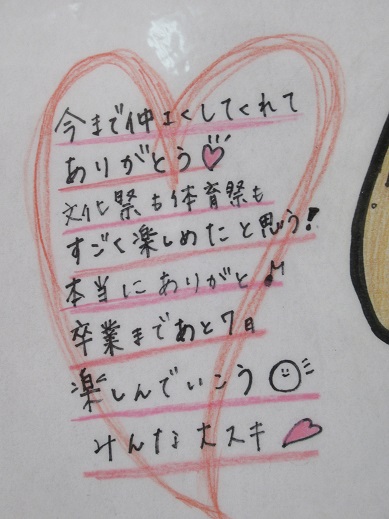 今まで仲よくしてくれて
ありがとう
文化祭も体育祭も
すごく楽しめたと思う!
本当にありがと♪
卒業まであと7日
楽しんでいこう
みんな大スキ